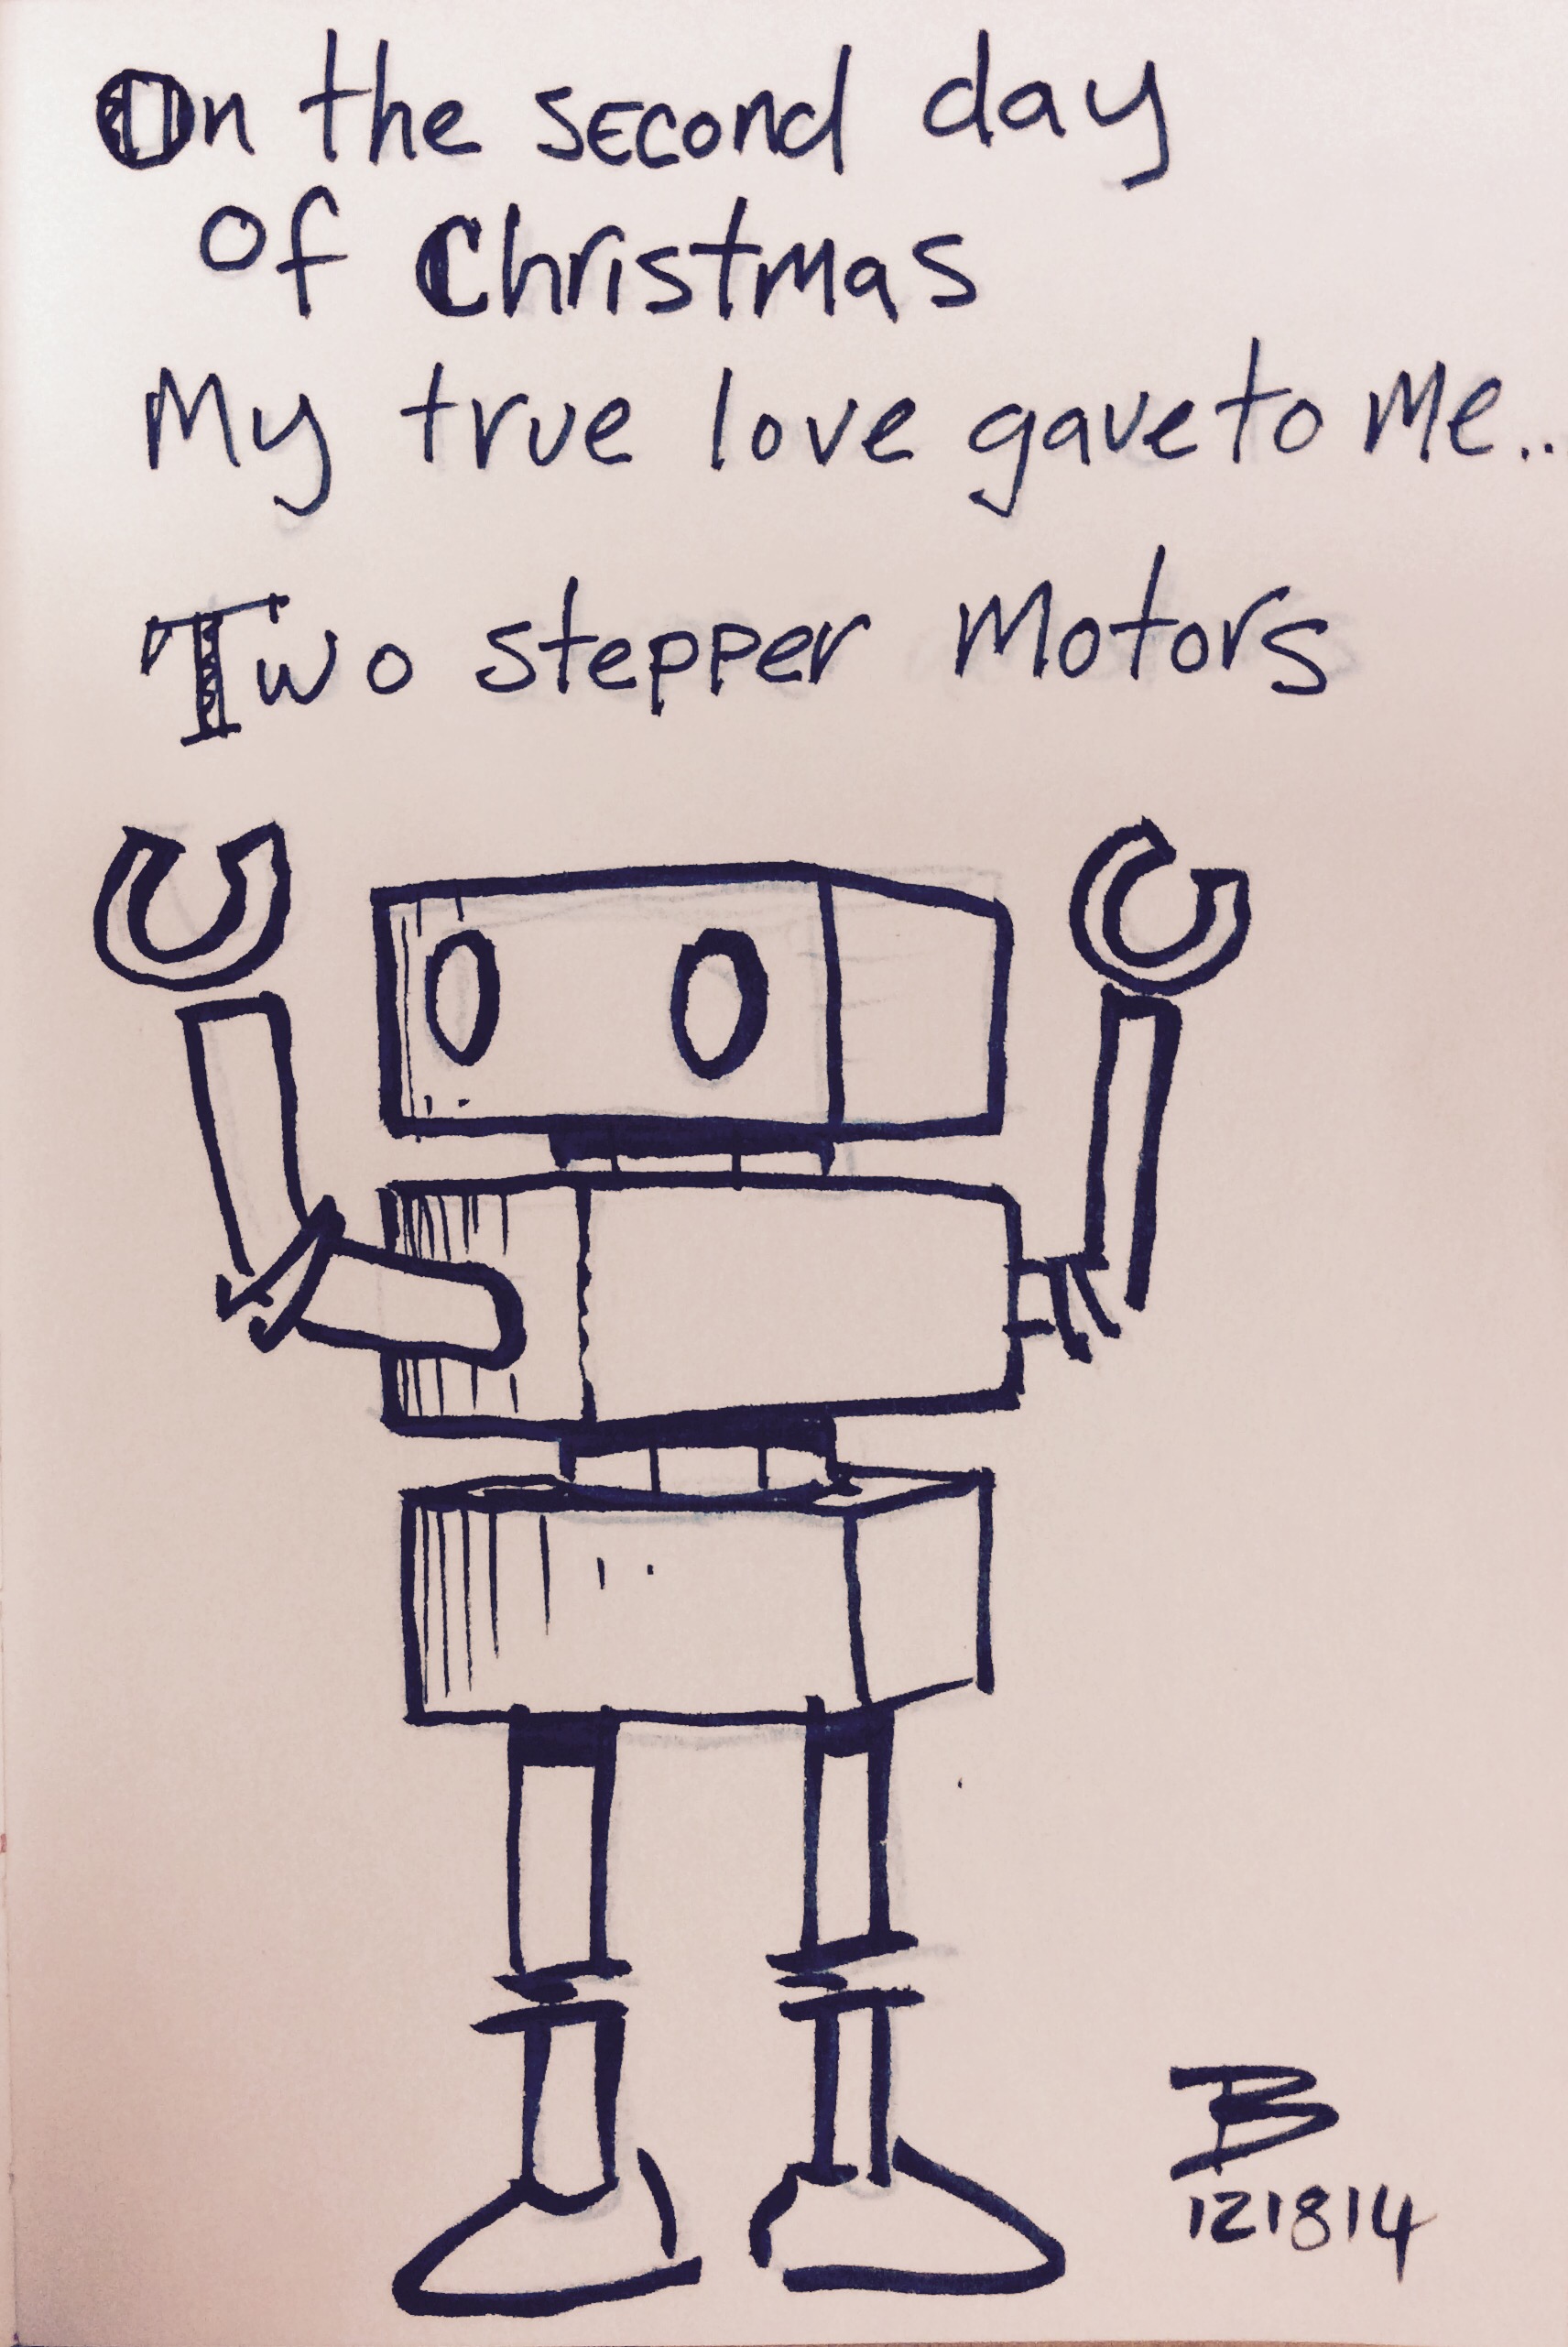 On the second day
of Christmas
My true love gave to me..
Two stepper motors
B
121814